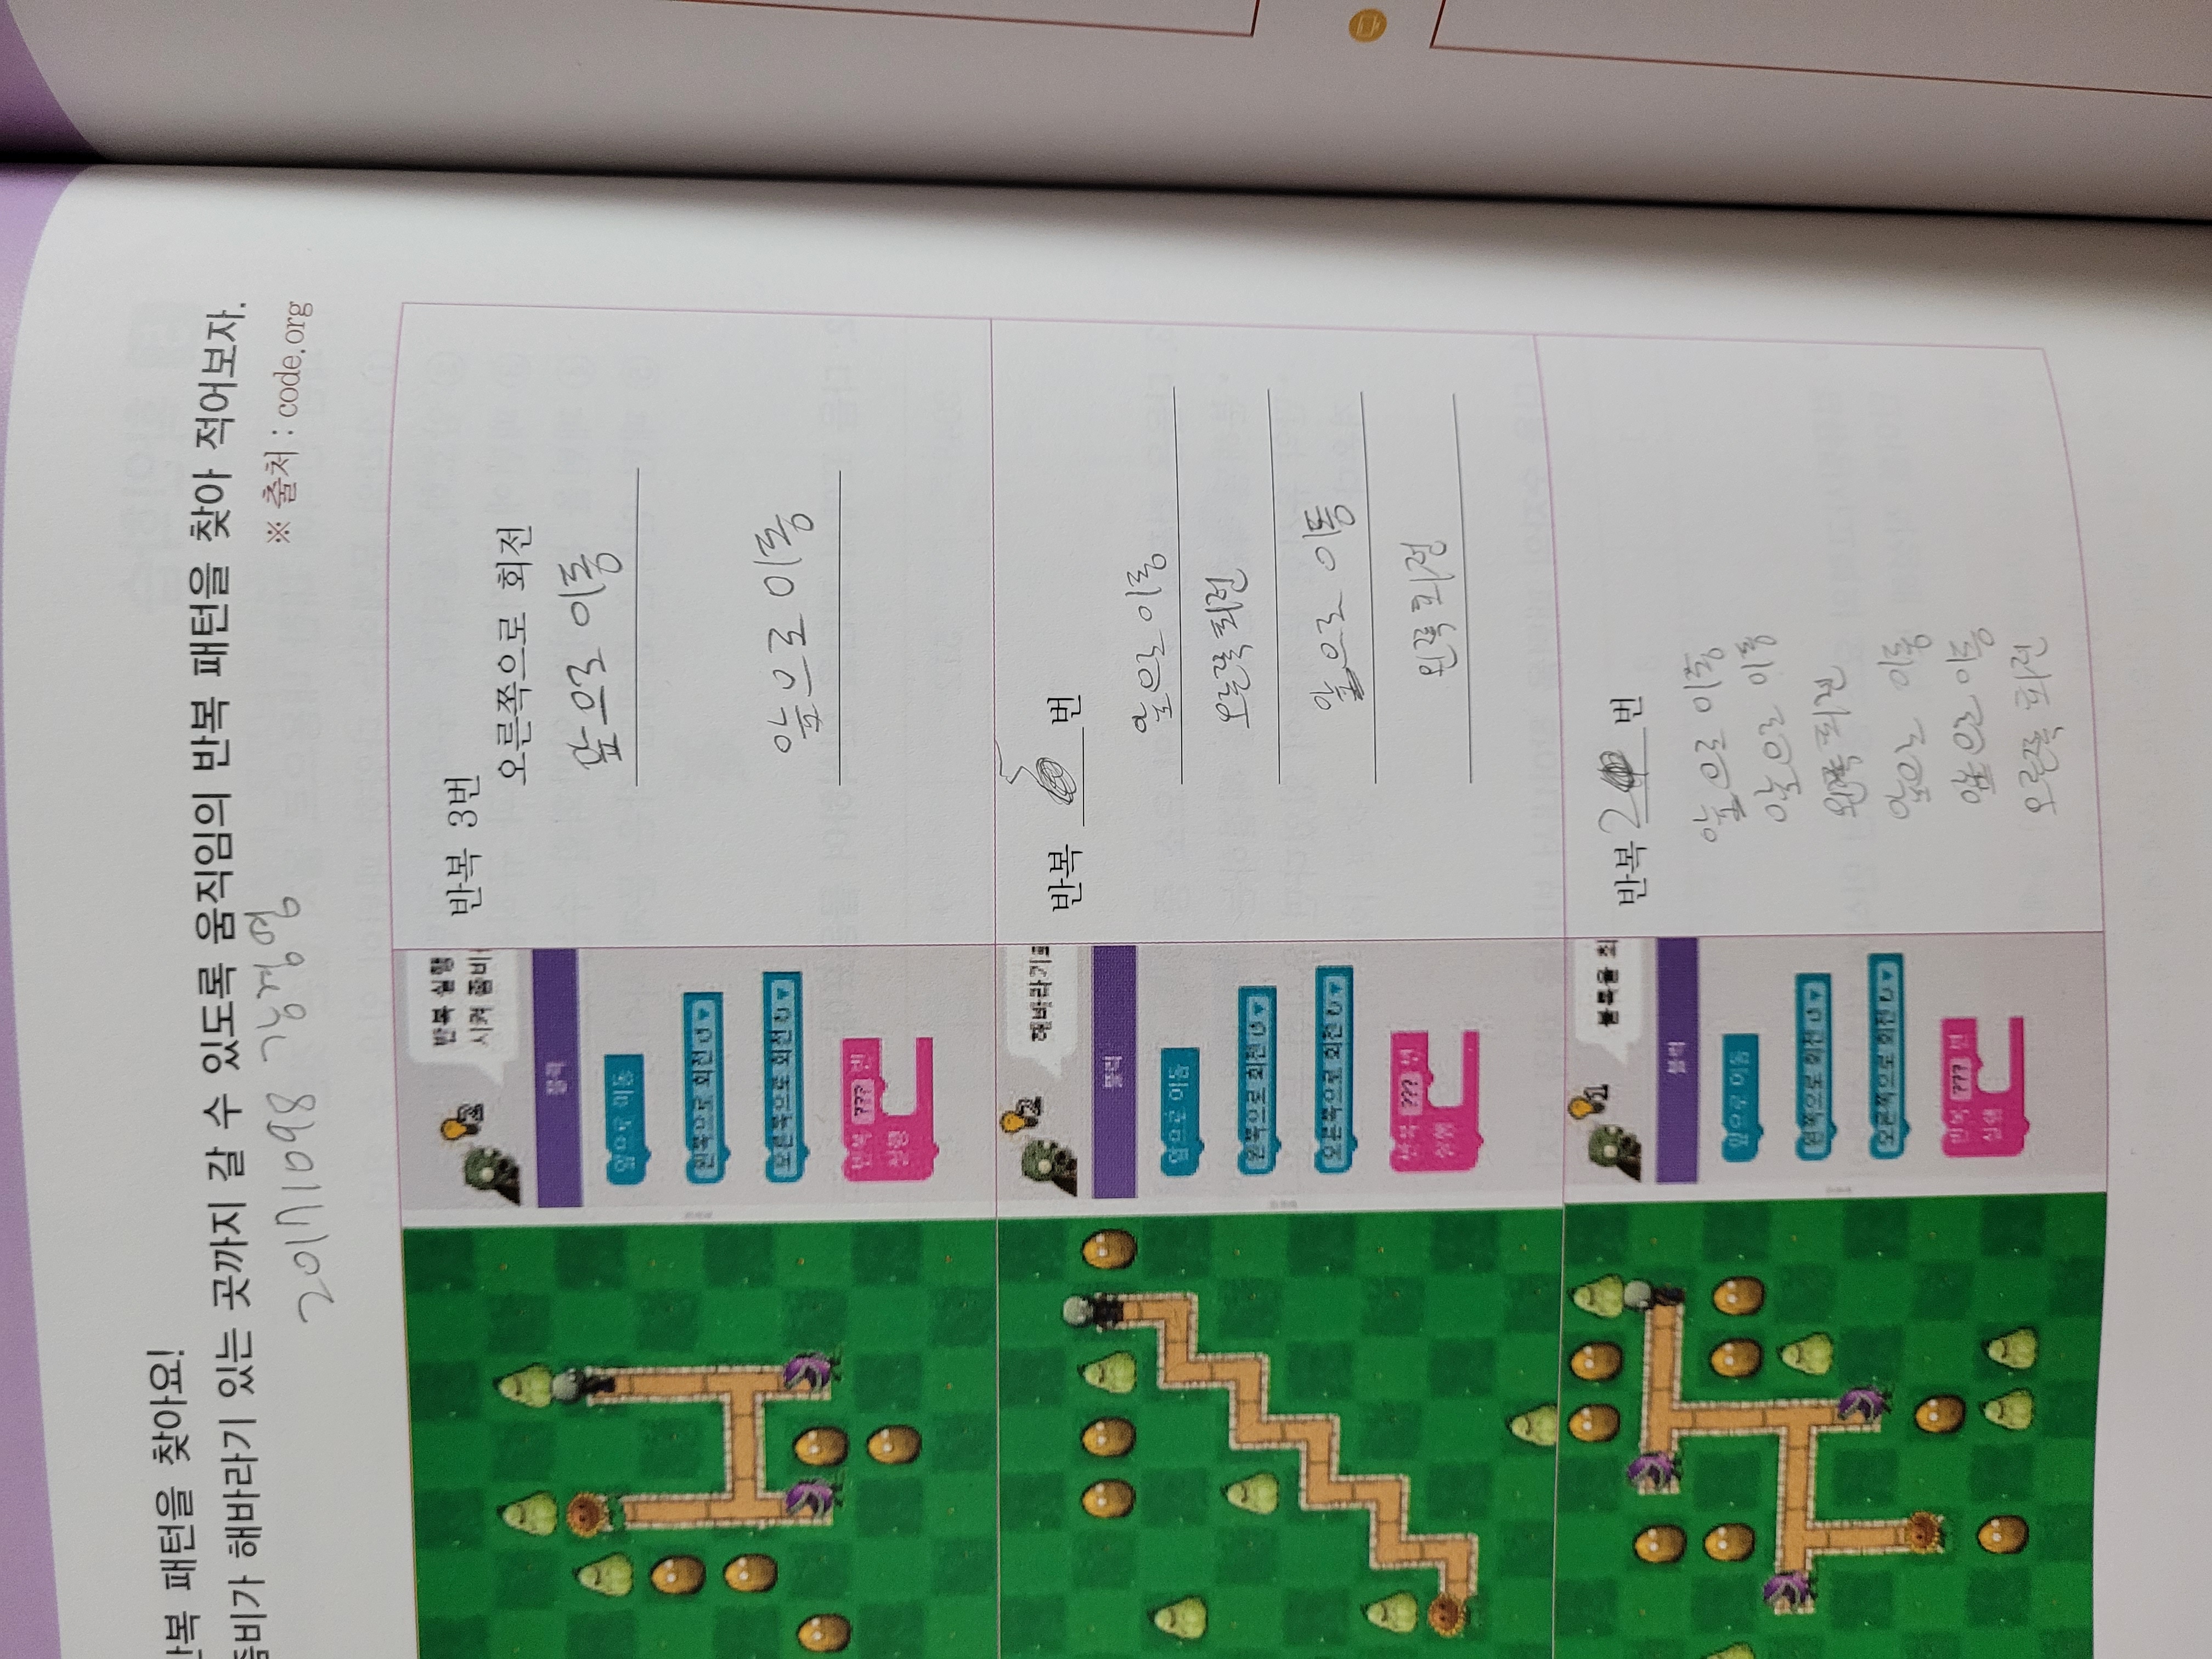 반복 패턴을 찾아요!
좀비가 해바라기 있는 곳까지 갈 수 있도록 움직임의 반복 패턴을 찾아 적어보자.
20171098 강경영
※ 출처 : code.org
2
반복 실행
시켜 좀비
블럭
앞으로 이동
왼쪽으로 회전
오른쪽으로 회전
반복 ??? 번
실행
반복 3번
오른쪽으로 회전
앞으로 이동
앞으로 이동
2
해바라기로
블럭
앞으로 이동
왼쪽으로 회전
오른쪽으로 회전
반복 ??? 번
실행
반복 5 번
앞으로 이동
오른쪽 회전
앞으로 이동
왼쪽 회전
1
블록을 최
블럭
앞으로 이동
왼쪽으로 회전
오른쪽으로 회전
반복 ??? 번
실행
반복 2 번
앞으로 이동
앞으로 이동
왼쪽 회전
앞으로 이동
앞으로 이동
오른쪽 회전